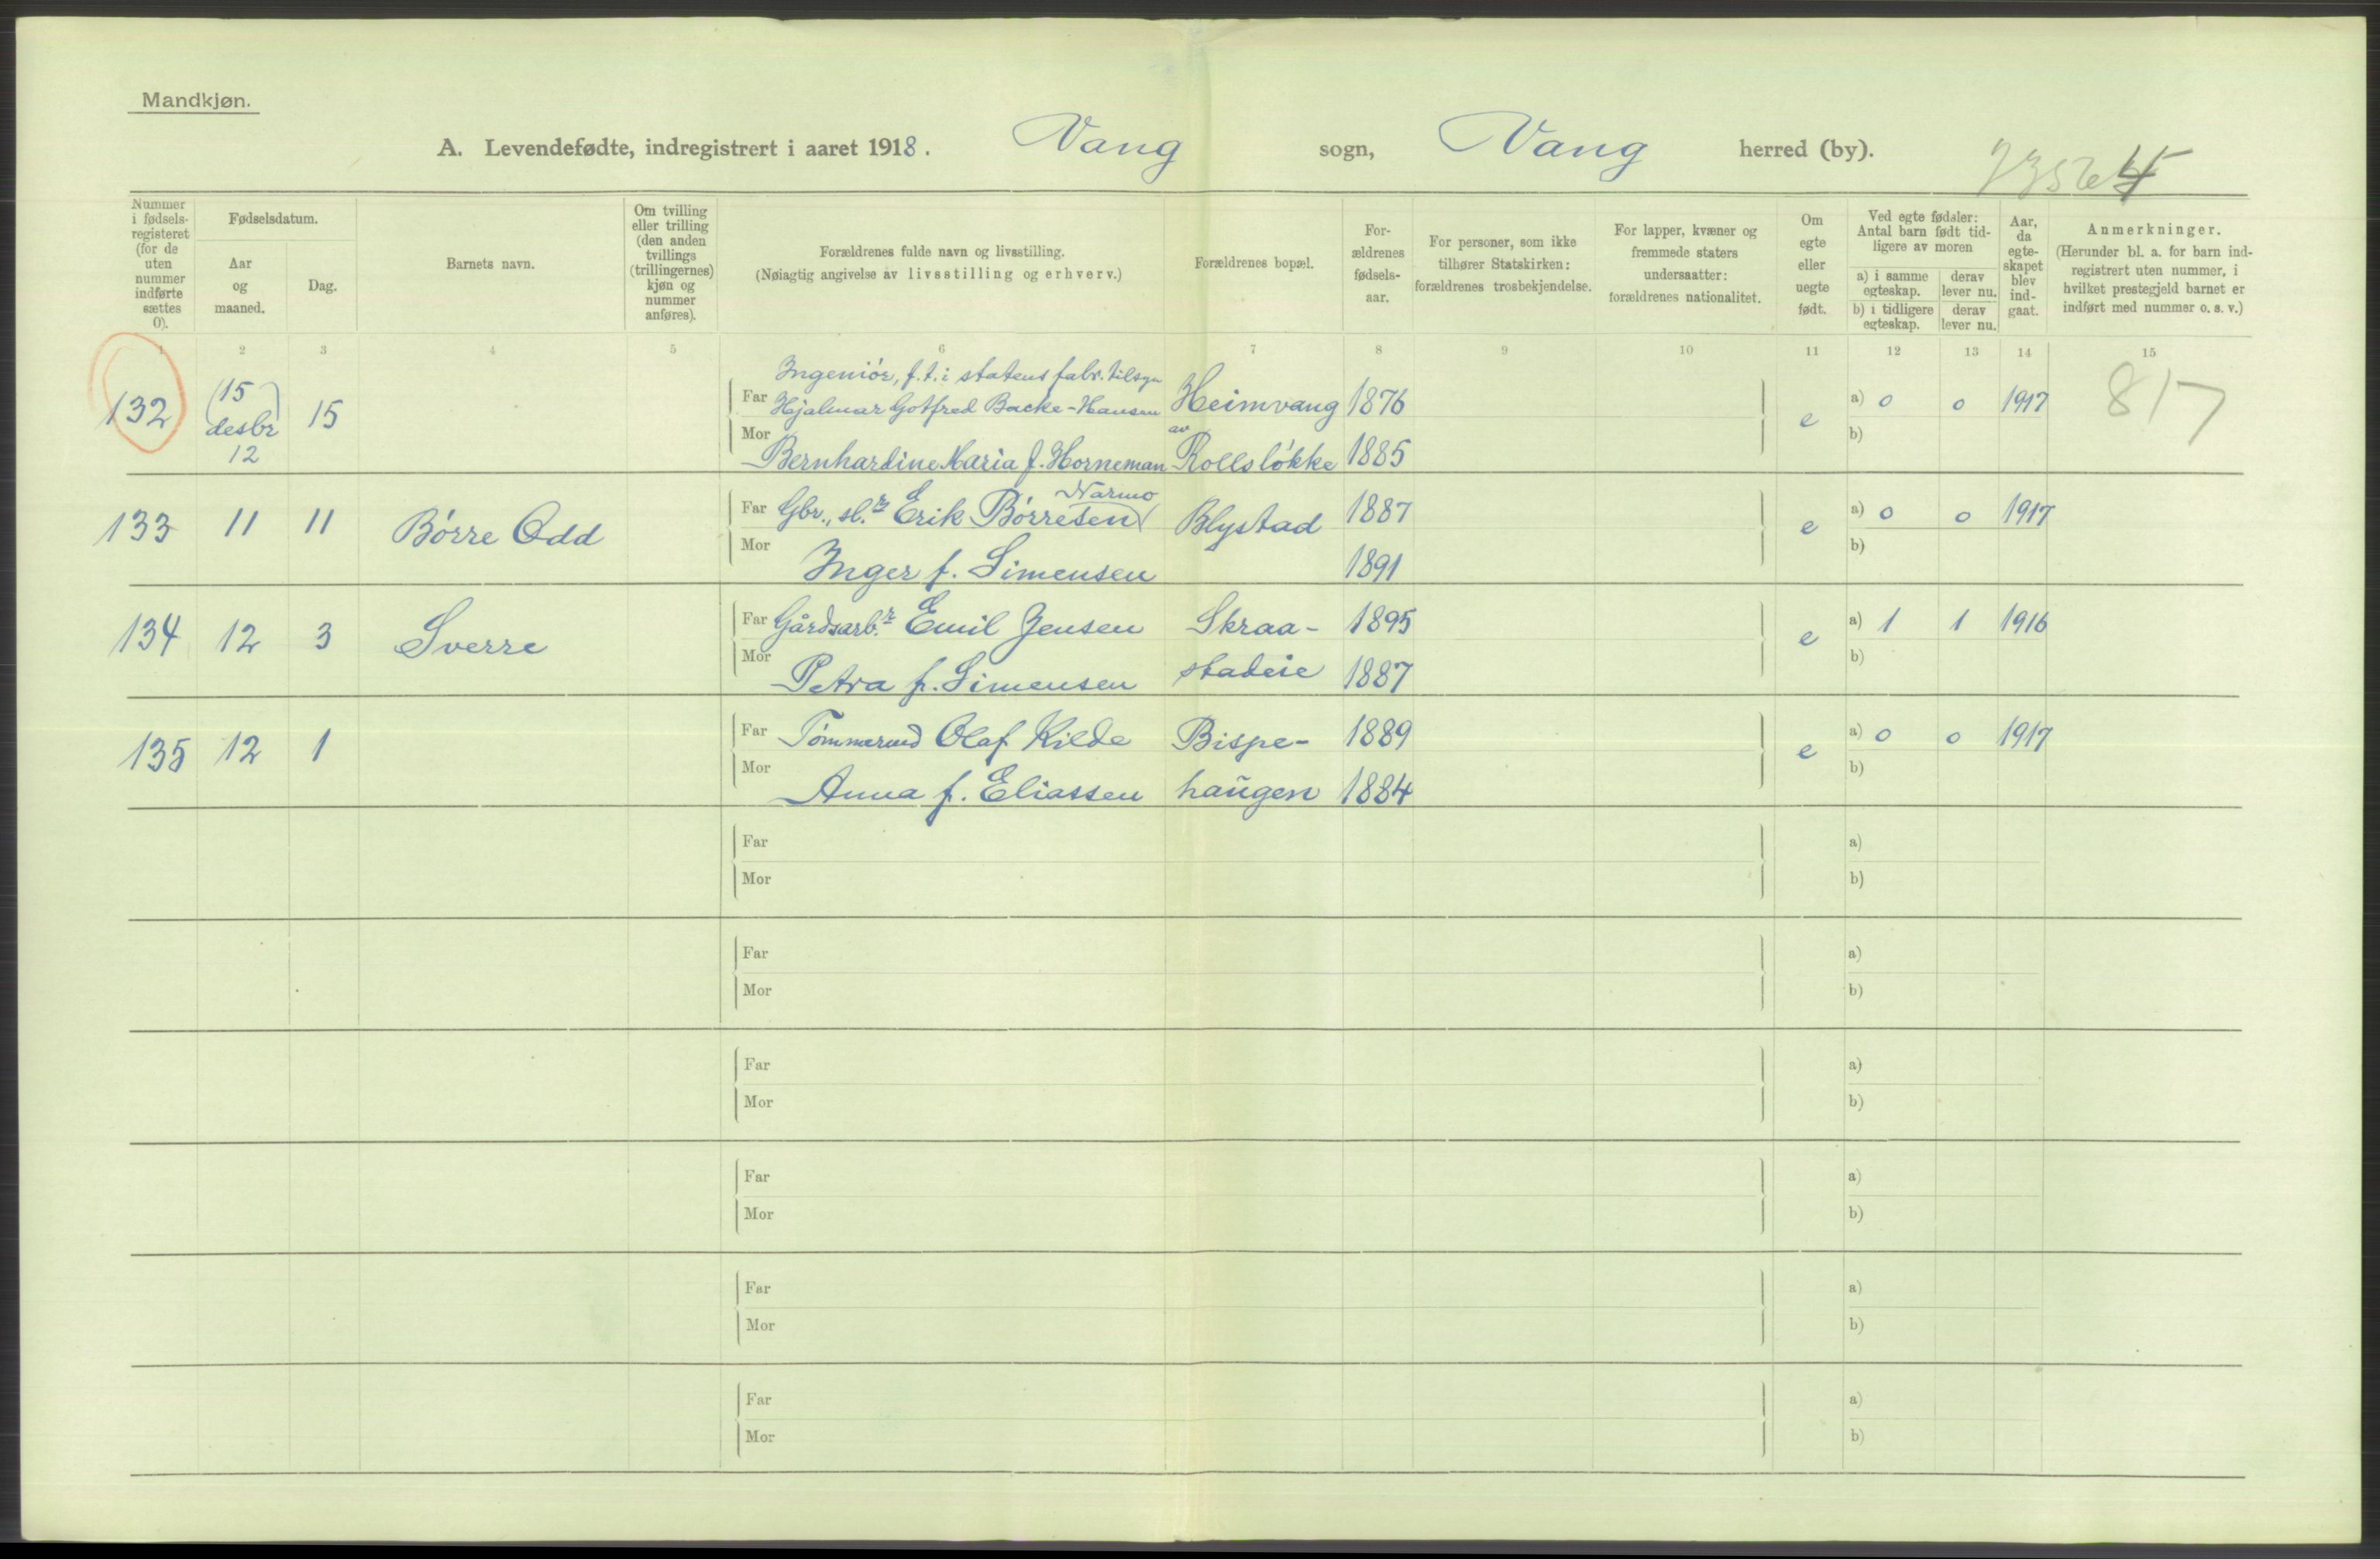 Mandkjøn.
A. Levendefødte, indregistrert i aaret 1918. Vang sogn, Vang herred (by).
Nummer i fødsels- registeret (for de uten nummer indførte sættes 0).
Fødselsdatum.
Aar og maaned.
Dag.
Barnets navn.
Om tvilling eller trilling (den anden tvillings (trillingernes) kjøn og nummer anføres).
Forældrenes fulde navn og livsstilling.
(Nøiagtig angivelse av livsstilling og erhverv.)
Forældrenes bopæl.
For- ældrenes fødsels- aar.
For personer, som ikke tilhører Statskirken: forældrenes trosbekjendelse.
For lapper, kvæner og fremmede staters undersaatter: forældrenes nationalitet.
Om egte eller uegte født.
Ved egte fødsler: Antal barn født tid- ligere av moren
a) i samme egteskap. derav lever nu.
b) i tidligere egteskap. derav lever nu.
Aar, da egte- skapet blev ind- gaat.
Anmerkninger.
(Herunder bl. a. for barn ind- registrert uten nummer, i hvilket prestegjeld barnet er indført med nummer o. s. v.)
1 2 3 4 5 6 7 8 9 10 11 12 13 14 15
Ingeniör, f.t. i statens fabr. tilsyn
132 (15 desbr) 12 15 Far Hjalmar Gotfred Backe-Hansen Heimvang 1876 e a) 0 0 1917 817
Mor Bernhardine Maria f. Horneman av Rollsløkke 1885 b)
133 11 11 Börre Odd Far Gbr., sl.r Erik Börresen Narmo Blystad 1887 e a) 0 0 1917
Mor Inger f. Simensen 1891 b)
134 12 3 Sverre Far Gårdsarb.r Emil Jensen Skraa- 1895 e a) 1 1 1916
Mor Petra f. Simensen stadeie 1887 b)
135 12 1 Far Tömmermd Olaf Kilde Bispe- 1889 e a) 0 0 1917
Mor Anna f. Eliassen haugen 1884 b)
Far a)
Mor b)
Far a)
Mor b)
Far a)
Mor b)
Far a)
Mor b)
Far a)
Mor b)
Far a)
Mor b)